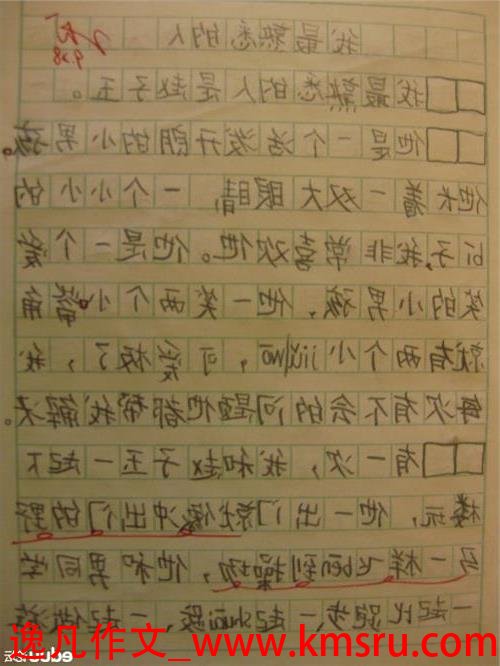 我最熟悉的人
9.28
我最熟悉的人是赵子玉。
他是一个活泼开朗的小男孩。
他长着一双大眼睛，一个小小的
bí子,我非常喜欢他。他是一个爱
笑的小男孩，他一笑两个小嘴角
就有两个小jiǔwō，可爱极了，我
每次有不会的问题他都帮我解决。
有一次，我和赵子玉一起下
楼玩，他一出门就像冲出门的野
马一样飞ben到操场，他和男同学
一起比跑步，一起shuai跤，一起做游
逸凡作文_www.kmsru.com